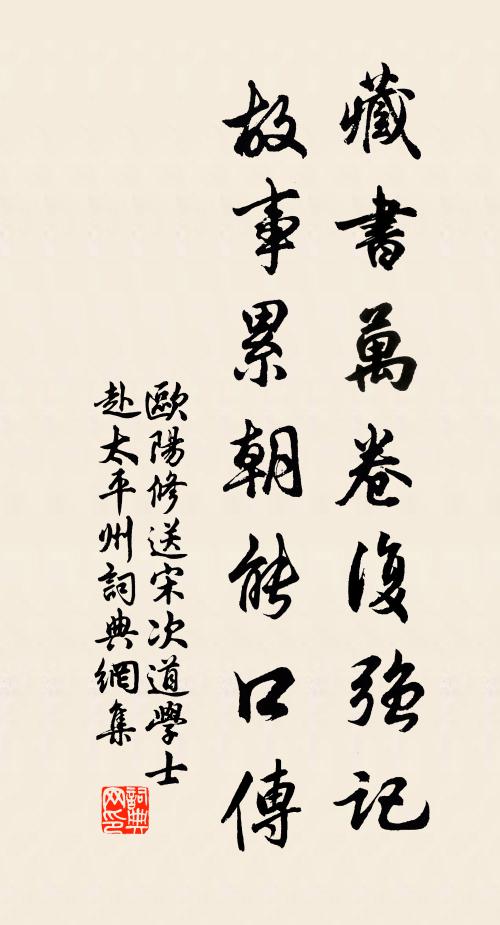 藏書萬卷復強記
故事累朝能口傳
歐陽修送宋次道學士
赴太平州詞典網集
詞典網印